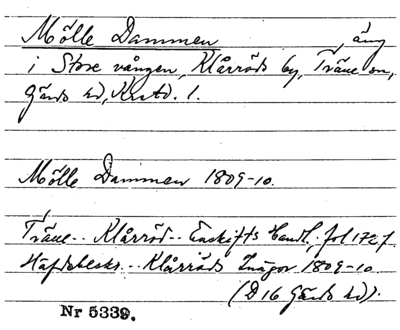 Mölle Dammen, äng
i Store vången, Klårröds by, Träne sn,
Gärds hd, Krstd. l.
Mölle Dammen 1809-10.
Träne - Klårröd - Enskifts Handl., fol 172 f.
Häfdebeskr. - Klårröds Inägor 1809-10
(D 16 Gärds hd).
Nr 5339.